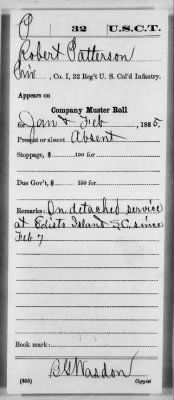 P 32 U.S.C.T.
Robert Patterson
Priv, Co. I, 32 Reg't U. S. Col'd Infantry.
Appears on
Company Muster Roll
for Jan & Feb, 1865.
Present or absent Absent
Stoppage, $ 100 for
Due Gov't, $ 100 for
Remarks: On detached service
at Edisto Island S.C. since
Feb 7
Book mark:
(358) Copyist